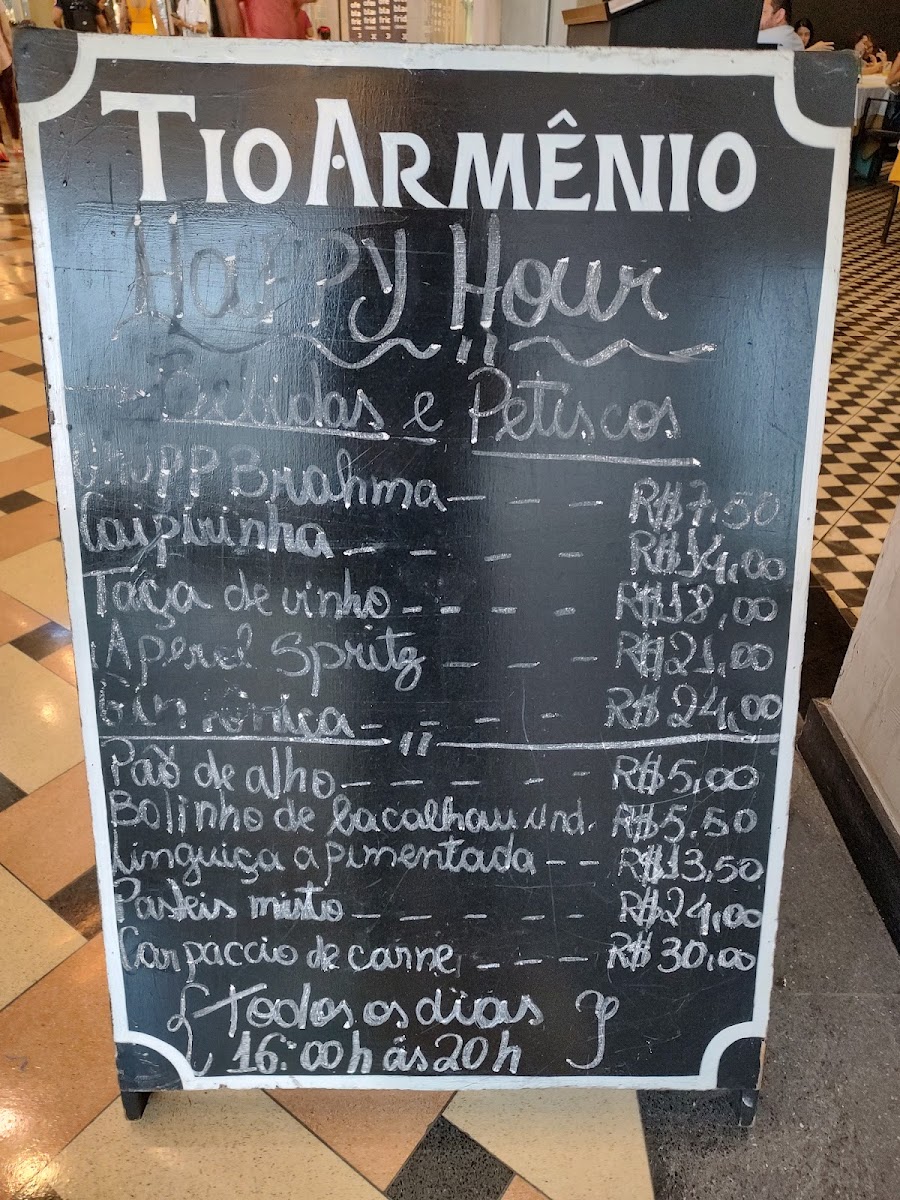 TIO ARMÊNIO
Happy Hour
Bebidas e Petiscos
Chopp Brahma - - - - R$7,50
Caipirinha - - - - R$14,00
Taça de vinho - - - - R$18,00
Aperol Spritz - - - R$21,00
Gin Tonica - - - - R$24,00
Pão de alho - - - - - R$5,00
Bolinho de bacalhau Und. R$5,50
Linguiça apimentada - - R$13,50
Pasteis misto - - - - - R$24,00
Carpaccio de carne - - - - R$30,00
{Todos os dias }
16:00h ás 20h